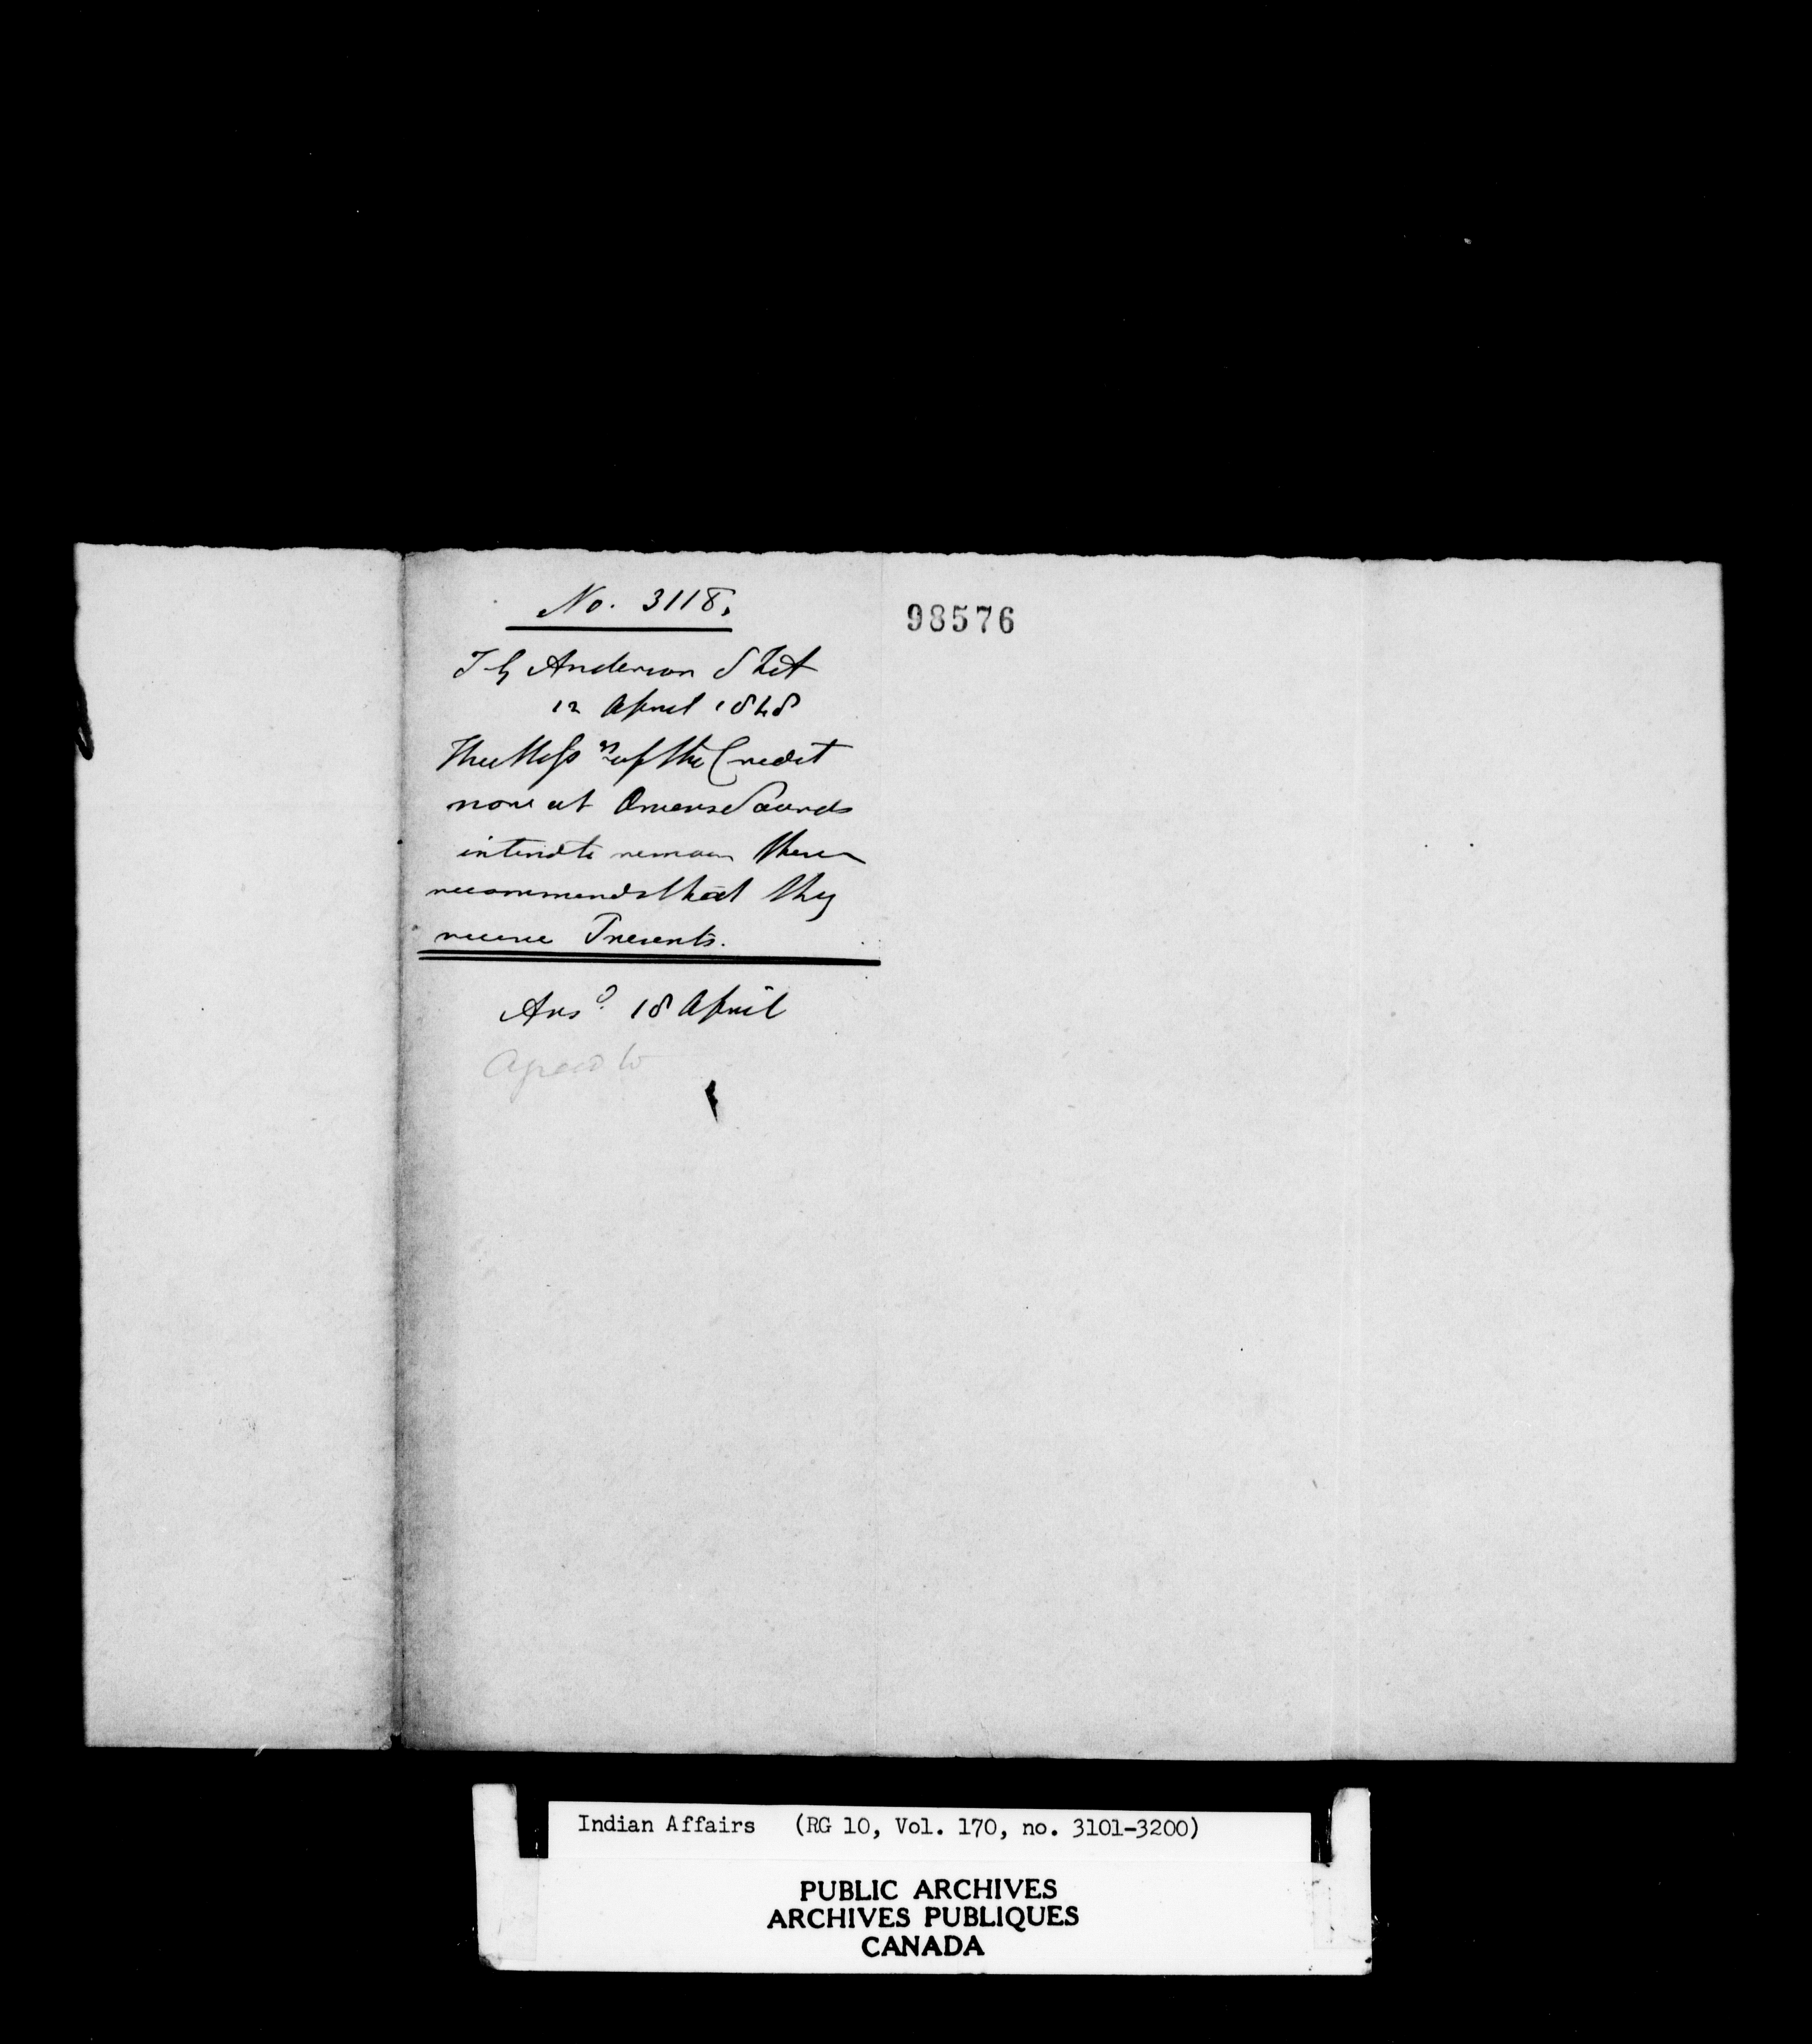 No. 3118.
98576
T G Anderson
12 April 1848
of the Credit
now at Owens Sound
intend to remain there
recommends that they
receive Presents.
Ansd. 18 April
Agreed to
Indian Affairs (RG 10, Vol. 170, no. 3101-3200)
PUBLIC ARCHIVES
ARCHIVES PUBLIQUES
CANADA